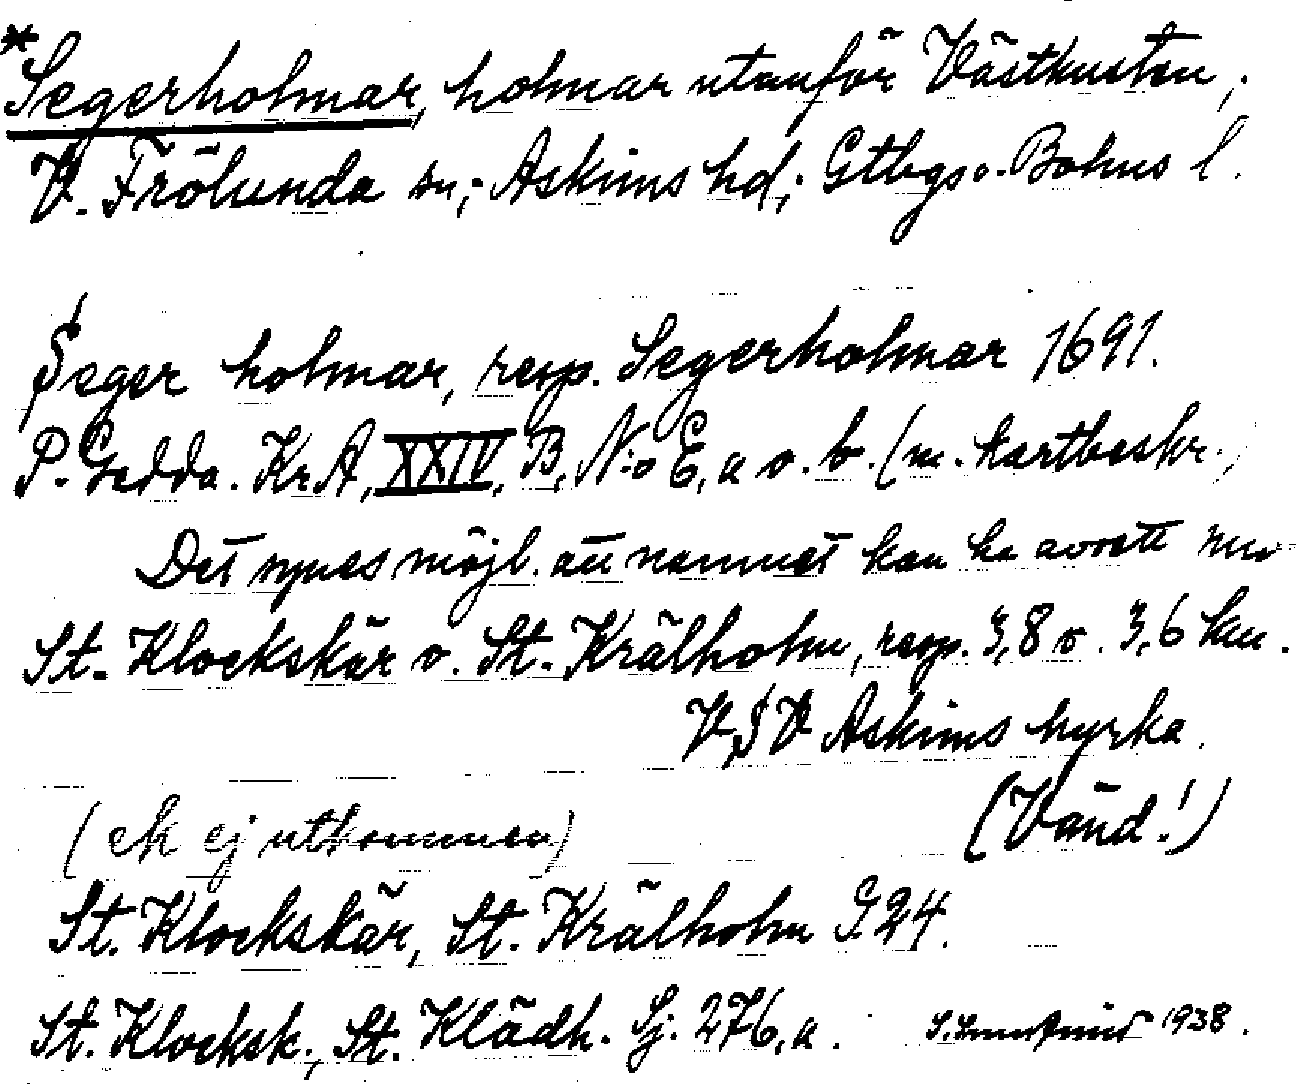 *Segerholmar, holmar utanför Västkusten,
V. Frölunda sn, Askims hd, Gtbgs o. Bohus l.
Seger holmar, resp. Segerholmar 1691.
P. Gedda. KrA, XXIV, B, N:o E, a o. b. (m. kartbeskr.)
Det synes möjl. att namnet kan ha avsett nuv.
St. Klockskär o. St. Krälholm, resp. 3,8 o. 3,6 km.
VSV Askims kyrka.
(Vänd!)
(ek ej utkommen)
St. Klockskär, St. Krälholm G.24.
St. Klocksk., St. Klädh. Sj. 276, a. 1938.